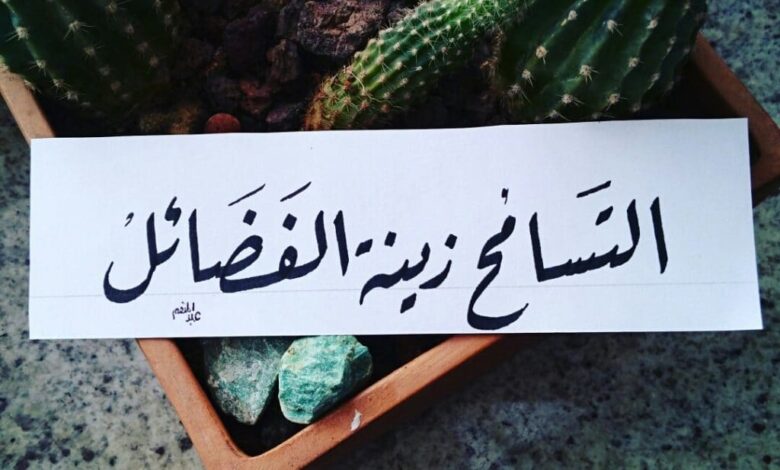 التسامح زينة الفَضَائلُ
عبد المنعم